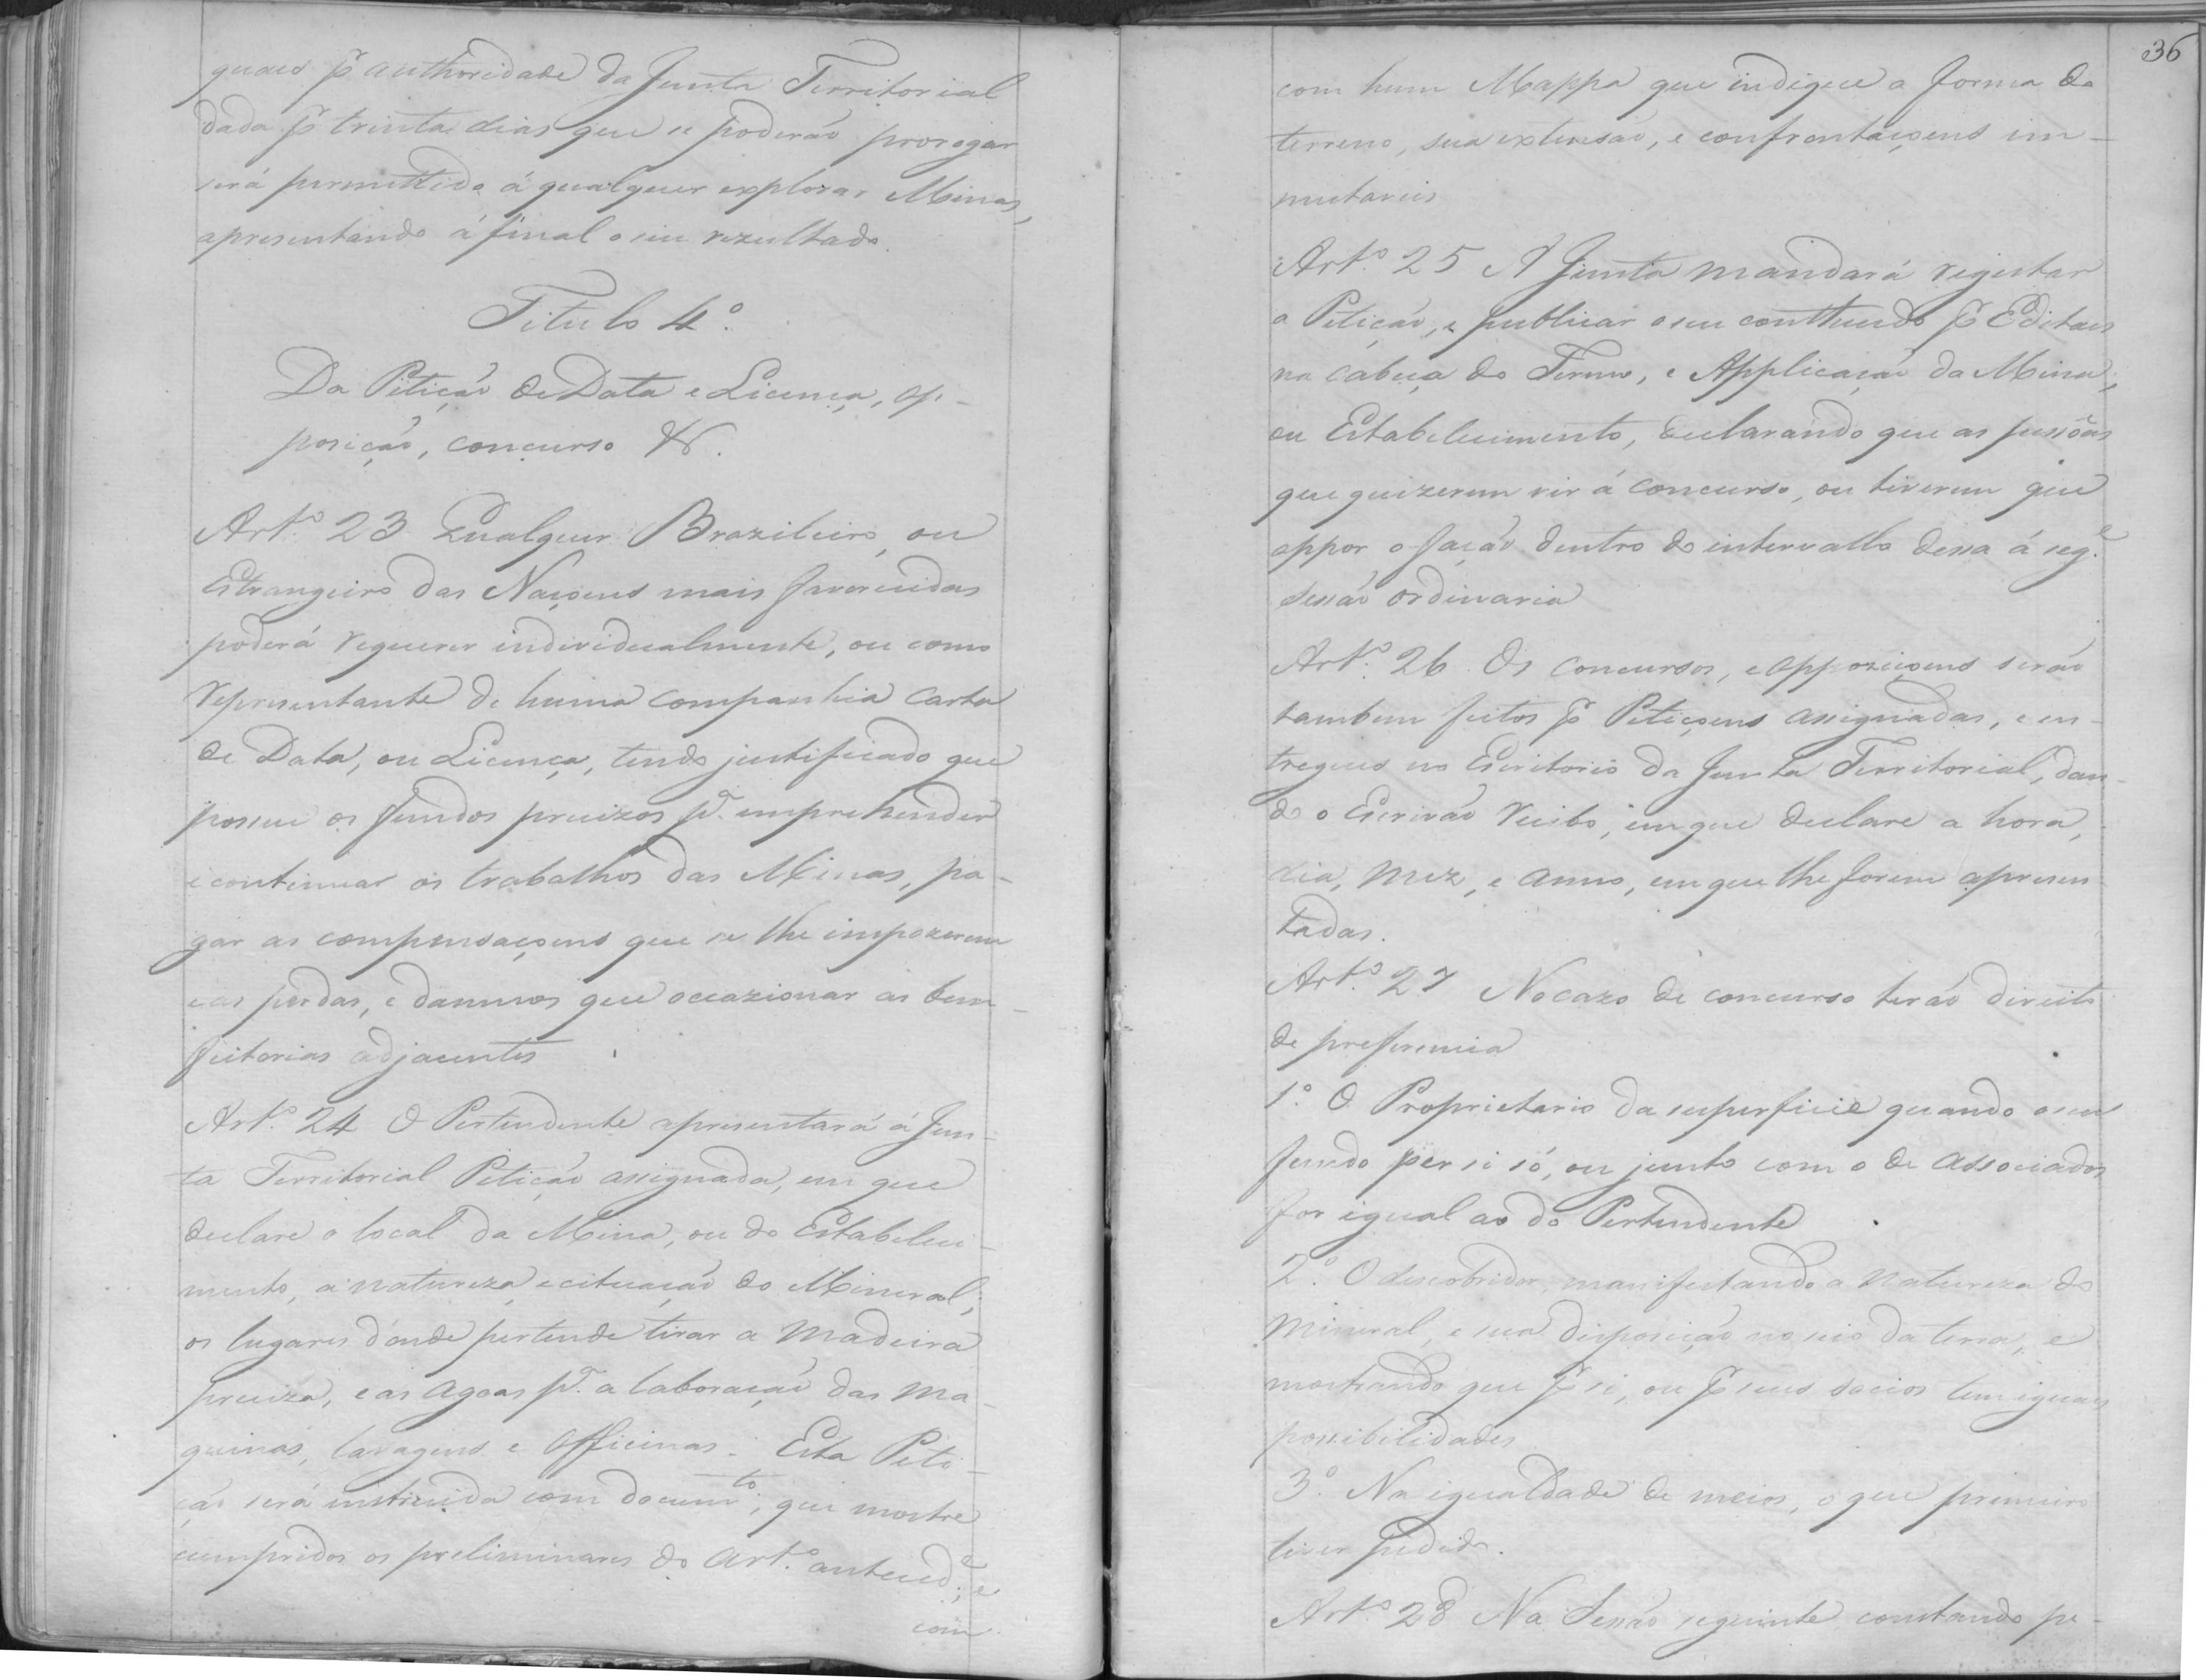 quaes pr authoridade da Junta Territorial
dada pr trinta dias que se poderáõ prorogar
será permittido á qualquer explorar Minas,
apresentando á final o seu rezultado.
Titulo 4º.
Da Petiçáõ de Data e Licença, op-
posiçáõ, concurso &.
Artº. 23 Qualquer Brazileiro, ou
Estrangeiro das Naçoens mais favorecidas
poderá requerer individualmente, ou como
representante de huma companhia Carta
de Data, ou Licença, tendo justificado que
possue os fundos precizos pª. emprehender
e continuar os trabalhos das Minas, pa-
gar as compensaçoens que se lhe impozerem
e as perdas, e damnos que occazionar as bem-
feitorias adjacentes
Artº. 24 O Pertendente apresentará á Jun-
ta Territorial Petiçáõ assignada, em que
declare o local da Mina, ou do Estabeleci-
mento, a natureza, e cituaçáõ do Mineral;
os lugares d'onde pertende tirar a Madeira
preciza, e as Agoas pª. a laboraçáõ das Ma-
quinas, lavagens e Officinas. Esta Peti-
çáõ será instruida com documto; que mostre
cumpridos os preliminares do Artº. anteced.e; e
com
36
com hum Mappa que indique a forma do
terreno, sua extensáõ, e confrontaçoens im-
mutaveis
Artº. 25 A Junta mandará registar
a Petiçáõ, e publicar o seu conttheudo pr Editaes
na cabeça do Termo, e Applicaçáõ da Mina,
ou Estabelecimento, declarando que as pessôas
que quizerem vir á concurso, ou tiverem que
oppor o façáõ dentro do intervallo dessa á seg.e
sessáõ ordinaria
Artº. 26 Os concursos, e oppoziçoens seráõ
tambem feitos pr Petiçoens assignadas, e en-
tregues no Escritorio da Junta Territorial, dan-
do o Escriváõ recibo, em que declare a hora,
dia, Mez, e Anno, em que lhe forem apresen
tadas.
Artº. 27 No cazo de concurso teráõ direito
de preferencia
1º. O Proprietario da superficie quando o seu
fundo per si só, ou junto com o de Associados
for igual ao do Pertendente
2º. O descobridor, manifestando a natureza do
Mineral, e sua disposiçáõ no seio da terra, e
mostrando que pr si, ou pr seus socios tem iguaes
possibilidades
3º. Na igualdade de meios, o que primeiro
tiver pedido.
Artº. 28 Na Sessáõ seguinte constando pe-